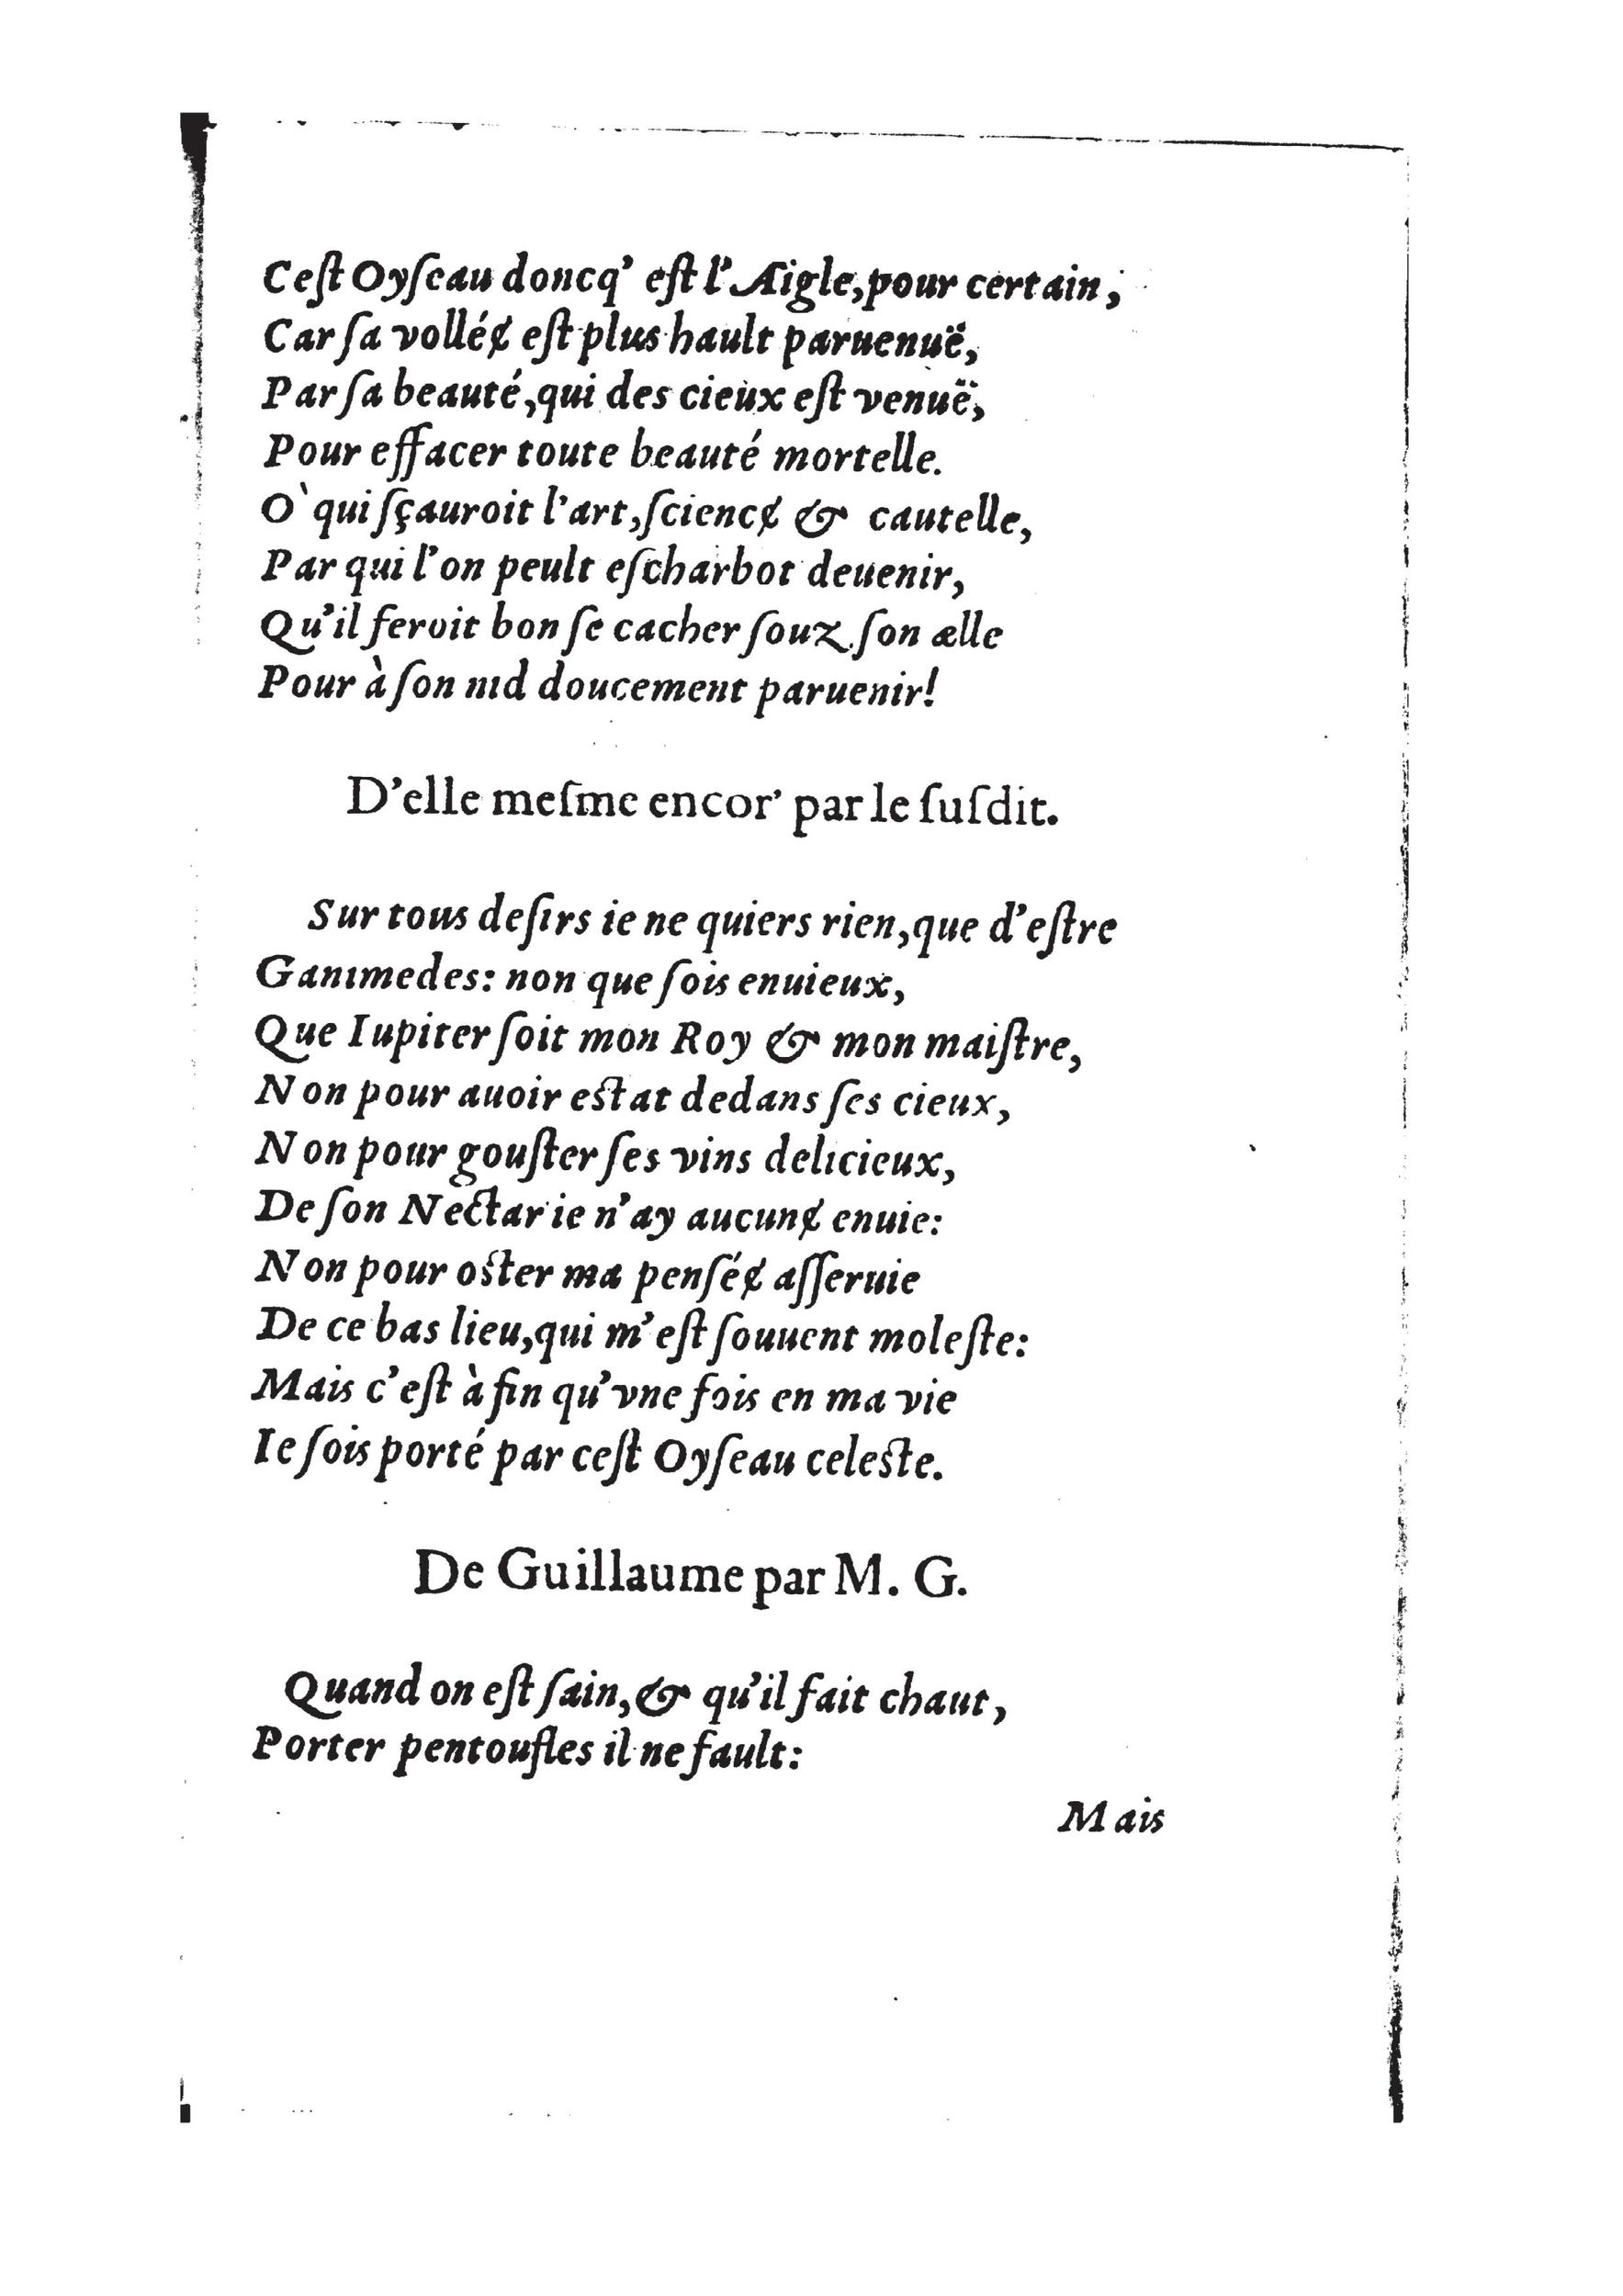 Ceſt Oyſeau doncq' eſt l'Aigle, pour certain,
Car ſa volléɇ eſt plus hault paruenuë,
Par ſa beauté, qui des cieux eſt venuë,
Pour effacer toute beauté mortelle.
O` qui ſçauroit l'art, ſciencɇ & cautelle,
Par qui l'on peult eſcharbot deuenir,
Qu'il feroit bon ſe cacher ſouz ſon ælle
Pour à ſon nid doucement paruenir!
D'elle meſme encor' par le ſuſdit.
Sur tous deſirs ie ne quiers rien, que d'eſtre
Ganimedes: non que ſois enuieux,
Que Iupiter ſoit mon Roy & mon maiſtre,
Non pour auoir eſtat dedans ſes cieux,
Non pour gouſter ſes vins delicieux,
De ſon Nectar ie n'ay aucunɇ enuie:
Non pour oſter ma penſéɇ aſſeruie
De ce bas lieu, qui m'eſt ſouuent moleſte:
Mais c'eſt à fin qu'vne fois en ma vie
Ie ſois porté par ceſt Oyſeau celeſte.
De Guillaume par M. G.
Quand on eſt ſain, & qu'il fait chaut,
Porter pentoufles il ne fault:
Mais